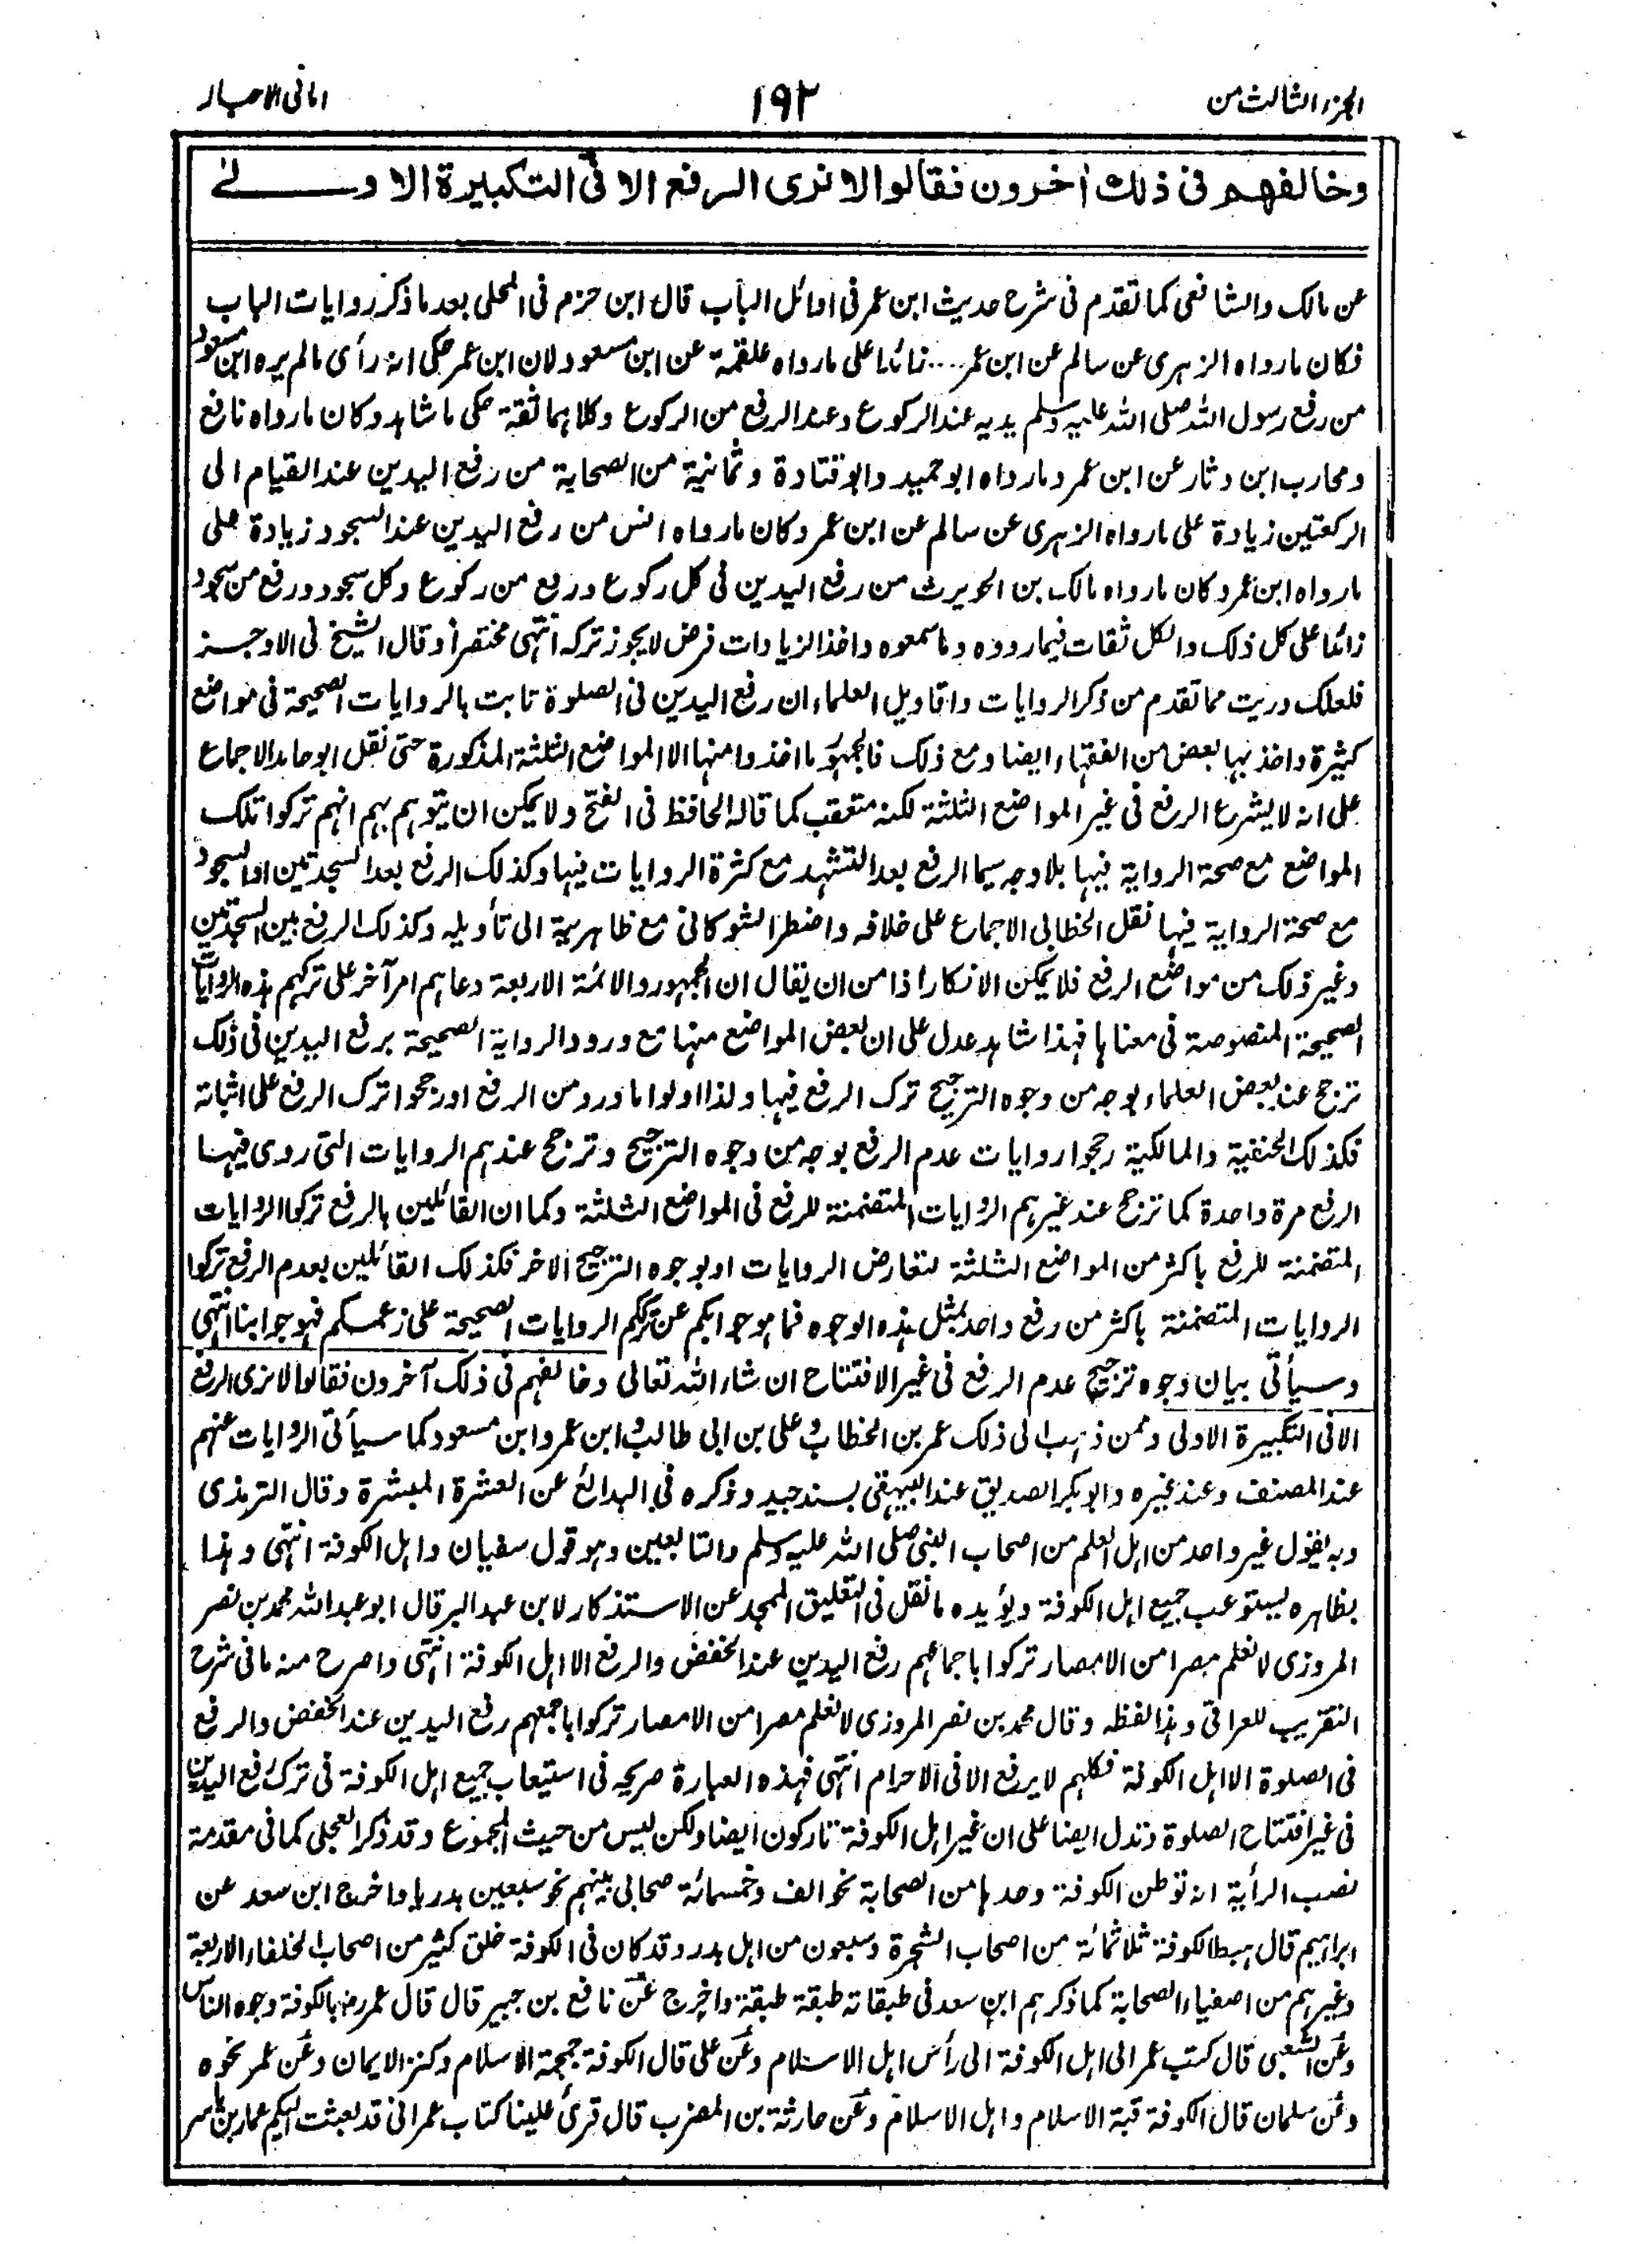 الجزء الثالث من
١٩٢
امانی الاحبار
وخالفهم فی ذلك اٰخرون فقالوا لا نری الرفع الا فی التكبیرة الاولیٰ
عن مالک والشافعی کما تقدم فی شرح حدیث ابن عمر فی اوائل الباب قال ابن حزم فی المحلی بعد ما ذکر روایات الباب
فکان ما رواه الزہری عن سالم عن ابن عمر .... زائدا علی ما رواه علقمة عن ابن مسعود لان ابن عمر حکی انہ رأی ما لم یره ابن مسعود
من رفع رسول اللہ صلی اللہ علیہ وسلم یدیہ عند الرکوع وعند الرفع من الرکوع وکلاہما ثقة حکی ما شاہد وکان ما رواه نافع
ومحارب ابن دثار عن ابن عمر وما رواه ابو حمید وابو قتادة وثمانیة من الصحابة من رفع الیدین عند القیام الی
الرکعتین زیادة علی ما رواه الزہری عن سالم عن ابن عمر وکان ما رواه انس من رفع الیدین عند السجود زیادة علی
ما رواه ابن عمر وکان ما رواه مالک بن الحویرث من رفع الیدین فی کل رکوع ورفع من رکوع وکل سجود ورفع من سجود
زائدا علی کل ذلک والکل ثقات فیما رووه وما سمعوه واخذ الزیادات فرض لا یجوز ترکہ انتہی مختصراً وقال الشیخ فی الاوجز
فلعلک دریت مما تقدم من ذکر الروایات واقاویل العلماء ان رفع الیدین فی الصلوة ثابت بالروایات الصحیحة فی مواضع
کثیرة واخذ بہا بعض من الفقہاء ایضا ومع ذلک فالجمہور ما اخذوا منہا الا المواضع الثلثة المذکورة حتی نقل ابو حامد الاجماع
علی انہ لا یشرع الرفع فی غیر المواضع الثلثة لکنہ متعقب کما قالہ الحافظ فی الفتح ولا یمکن ان یتوہم بہم انہم ترکوا تلک
المواضع مع صحة الروایة فیہا بلا وجہ سیما الرفع بعد التشہد مع کثرة الروایات فیہا وکذلک الرفع بعد السجدتین او السجود
مع صحة الروایة فیہا نقل الخطابی الاجماع علی خلافہ واضطر الشوکانی مع ظاہریتہ الی تأویلہ وکذلک الرفع بین السجدتین
وغیر ذلک من مواضع الرفع فلا یمکن الانکار اذا من ان یقال ان الجمہور والائمة الاربعة دعاہم امر آخر علی ترکہم ہذہ الروایات
الصحیحة المنصوصة فی معناہا فہذا شاہد عدل علی ان بعض المواضع منہا مع ورود الروایة الصحیحة برفع الیدین فی ذلک
ترجح عند بعض العلماء بوجہ من وجوه الترجیح ترک الرفع فیہا ولذا اولوا ما ورد من الرفع او رجحوا ترک الرفع علی اثباتہ
فکذلک الحنفیة والمالکیة رجحوا روایات عدم الرفع بوجہ من وجوه الترجیح وترجح عندہم الروایات التی روی فیہا
الرفع مرة واحدة کما ترجح عند غیرہم الروایات المتضمنة للرفع فی المواضع الثلثة وکما ان القائلین بالرفع ترکوا الروایات
المتضمنة للرفع باکثر من المواضع الثلثة لتعارض الروایات او بوجوه الترجیح الاخر فکذلک القائلین بعدم الرفع ترکوا
الروایات المتضمنة باکثر من رفع واحد بمثل ہذه الوجوه فما ہو جوابکم عن ترککم الروایات الصحیحة علی زعمکم فہو جوابنا انتہی
وسیأتی بیان وجوه ترجیح عدم الرفع فی غیر الافتتاح ان شاء اللہ تعالی وخالفہم فی ذلک آخرون فقالوا لا نری الرفع
الا فی التکبیرة الاولی وممن ذہب الی ذلک عمر بن الخطاب وعلی بن ابی طالب وابن عمر وابن مسعود کما سیأتی الروایات عنہم
عند المصنف وعند غیره وابو بکر الصدیق عند البیہقی بسند جید وذکره فی البدائع عن العشرة المبشرة وقال الترمذی
وبہ یقول غیر واحد من اہل العلم من اصحاب النبی صلی اللہ علیہ وسلم والتابعین وہو قول سفیان واہل الکوفة انتہی وہذا
بظاہره یستوعب جمیع اہل الکوفة ویؤیده ما نقل فی التعلیق الممجد عن الاستذکار لابن عبد البر قال ابو عبد اللہ محمد بن نصر
المروزی لا نعلم مصرا من الامصار ترکوا باجماعہم رفع الیدین عند الخفض والرفع الا اہل الکوفة انتہی واصرح منہ ما فی شرح
التقریب للعراقی وہذا لفظہ وقال محمد بن نصر المروزی لا نعلم مصرا من الامصار ترکوا باجمعہم رفع الیدین عند الخفض والرفع
فی الصلوة الا اہل الکوفة فکلہم لا یرفع الا فی الاحرام انتہی فہذه العبارة صریحہ فی استیعاب جمیع اہل الکوفة فی ترک رفع الیدین
فی غیر افتتاح الصلوة وتدل ایضا علی ان غیر اہل الکوفة تارکون ایضا ولکن لیس من حیث المجموع وقد ذکر العجلی کما فی مقدمة
نصب الرأیة انہ توطن الکوفة وحدہا من الصحابة نحو الف وخمسمائة صحابی بینہم نحو سبعین بدریا واخرج ابن سعد عن
ابراہیم قال ہبط الکوفة ثلاثمائة من اصحاب الشجرة وسبعون من اہل بدر وقد کان فی الکوفة خلق کثیر من اصحاب الخلفاء الاربعة
وغیرہم من اصفیاء الصحابة کما ذکرہم ابن سعد فی طبقاتہ طبقة طبقة واخرج عن نافع بن جبیر قال قال عمر رض بالکوفة وجوه الناس
وعن الشعبی قال کتب عمر الی اہل الکوفة الی رأس اہل الاسلام وعن علی قال الکوفة جمجمة الاسلام وکنز الایمان وعن عمر نحوه
وعن سلمان قال الکوفة قبة الاسلام واہل الاسلام وعن حارثة بن المضرب قال قرئ علینا کتاب عمر انی قد بعثت الیکم عمار بن یاسر